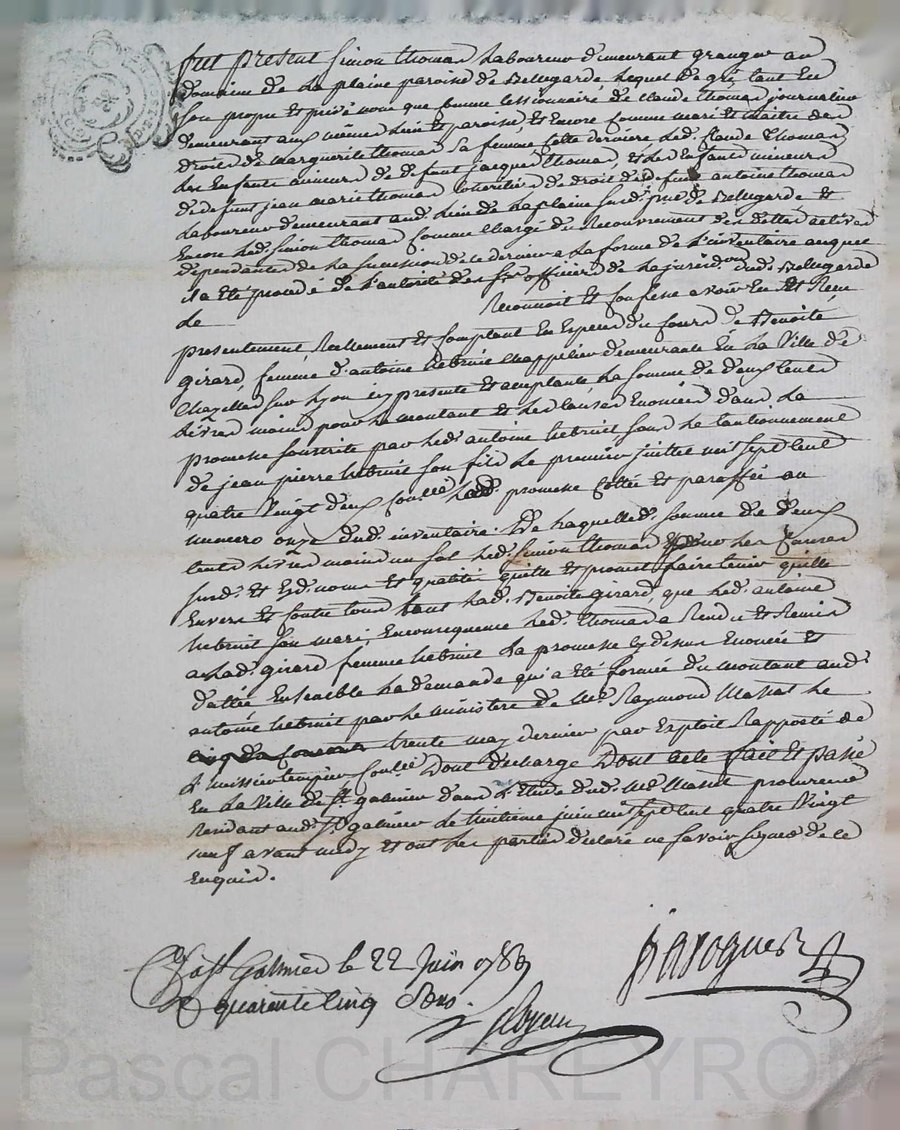 fut présent Simon thomas Laboureur demeurant granger au
domaine de La plaine paroisse de Bellegarde Lequel de gré tant En
Son propre et privé nom que comme Cessionnaire de Claude thomas journalier
demeurant aux mêmes Lieu et paroisse et Encore comme mari et maitre des
droits de marguerite thomas Sa femme Cette dernière Led. Claude Thomas
Les Enfants mineurs de défunt jacques Thomas et Les Enfants mineurs
de défunt jean marie thomas héritiers de droit de défunt antoine thomas
Laboureur demeurant aud. Lieu de La plaine Susd. psse de Bellegarde et
Encore Led. Simon thomas comme Chargé du Recouvrement des dettes actives
dépendantes de La Succession de ce dernier a La forme de L'inventaire auquel
il a Eté procédé de L'autorité des Srs officiers de La jurisd.on dud. Bellegarde
Le Reconnoit et Confesse avoir Eu et Reçu
presentement Réellement et Comptant En Especes du Cours de Benoite
girard, femme d'antoine Lebruit Chappelier demeurante En La Ville de
Chazelles Sur Lyon icy présente et acceptante La Somme de deux Cents
Livres moins pour Le montant et Les Causes Enoncées dans La
promesse Souscrite par Led. antoine Lebruit Sous Le Cautionnement
de jean pierre Lebruit Son fils Le premier juillet mil sept Cent
quatre Vingt deux Conllé Lad. promesse Cottée et paraffée au
numero onze dud. inventaire. De Laquelle d. somme de deux
Cents Livres moins un sol Led. Simon thomas pour Les Causes
susd. et Esd. noms et qualités quitte et promet faire tenir quitte
Envers et Contre tous tant Lad. Benoite girard, que Led. antoine
Lebruit Son mari, En consequence Led. thomas a Rendu et Remis
a Lad. girard femme Lebruit La promesse cy dessus Enoncée et
dattée Ensemble La demande qui a été formée du montant aud.
antoine Lebruit par Le ministère de Me Raymond Le
trente may dernier par Exploit Rapporté de
Conllé. Dont décharge Dont acte fait et passé
En La Ville de St galmier dans L'étude dud. Me procureur
Résidant aud. St galmier Le huitieme juin mil sept Cent quatre Vingt
neuf avant midy et ont Les parties déclaré ne Savoir Signer de Ce
Enquis.
C. à St Galmier le 22 Juin 1789
R quarante Cinq Sous.
Pascal CHARLEYRON